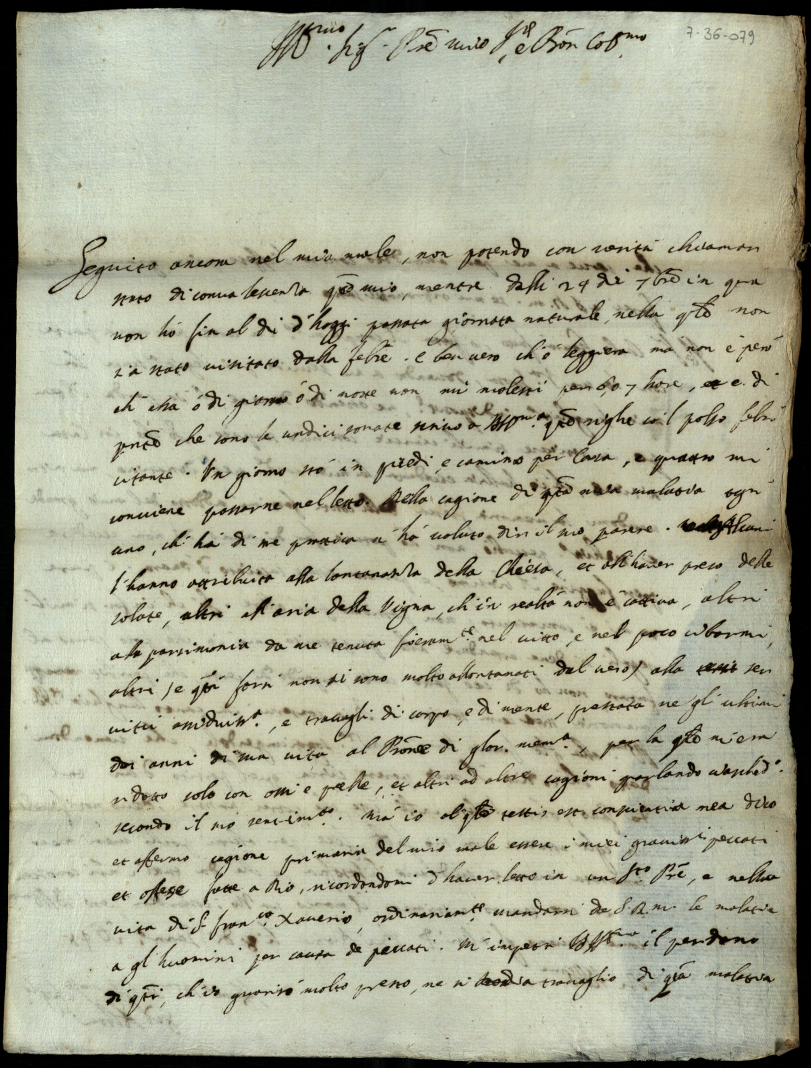 7-36-079
Ill.mo Sig.r Prē mio S.re e Prōn Col.mo
Seguito ancora nel mio male, non potendo con verità chiamarsi
stato di convalescenza qto mio, mentre dalli 24 di 7bre in qua
non hò fin al dì d'hoggi passata giornata naturale, nella qle non
sia stato visitato dalla febre. è ben vero ch'è leggiera ma non è però
ch'essa ò di giorno ò di notte non mi molesti per 6 o 7 hore, et e di
che sono le undici sonate scrivo a qte righe co'l polso febri
citante. Un giorno stò in piedi, e camino per casa, e quattro mi
conviene passarne nel letto. Della cagione di qta mia malatia ogn'
uno, ch'hà di me prattica n'hà voluto dir il suo parere. Alcuni
l'hanno attribuita alla lontananza della Chiesa, et all'haver preso delle
solate, altri all'aria della Vigna, ch'in realtà non è cattiva, altri
alla parsimonia da me tenuta nel vitto, e nel poco cibarmi,
altri (e qti forsi non si sono molto allontanati dal vero) alla ser
vitù assiduiss.a, e travagli di corpo, e di mente, prestata ne gl'ultimi
dei anni di sua vita al Prōne di glor. mem.a, per la qle m'era
ridotto solo con ossi e pelle, et altri ad altre cagioni parlando ciasched.o
secondo il suo sentim.to. Mà io al qle testis est conscientia mea dico
et affermo cagione primaria del mio male essere i miei gravissi peccati
et offese fatte a Dio, ricordandomi d'haver letto in un S.to Prē, e nella
vita di S. Fran.co Xaverio, ordinariam.te mandarsi da S.D.M. le malatie
a gl'huomini per causa de peccati. M'impetri il perdono
di qti, ch'io guarirò molto presto, ne si travaglio di qta malatia